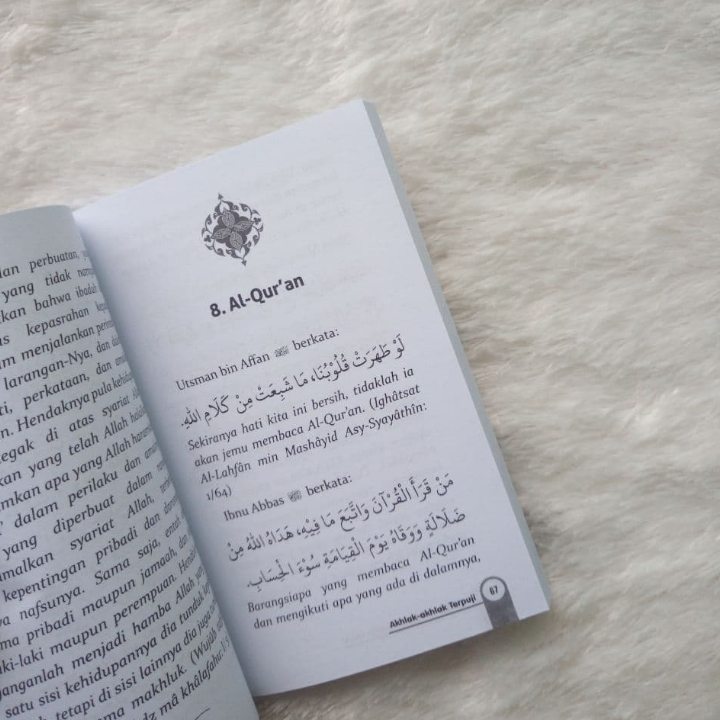 dan perbuatan,
yang tidak
bahwa ibadah
kepasrahan
menjalankan
larangan-Nya, dan
perkataan, dan
Hendaknya pula
di atas syariat
yang telah Allah
apa yang Allah
dalam perilaku dan
yang diperbuat dalam
syariat Allah,
kepentingan pribadi dan
nafsunya. Sama saja,
pribadi maupun jamaah,
maupun perempuan.
menjadi hamba Allah
satu sisi kehidupannya dia tunduk
tetapi di sisi lainnya dia juga
makhluk. (Wujûb
mâ khâlafahu:
8. Al-Qur'an
Utsman bin Affan ﷺ berkata:
لَوْ طَهَرَتْ قُلُوْبُنَا، مَا شَبِعَتْ مِنْ كَلَامِ اللهِ.
Sekiranya hati kita ini bersih, tidaklah ia
akan jemu membaca Al-Qur'an. (Ighâtsat
Al-Lahfân min Mashâyid Asy-Syayâthîn:
1/64)
Ibnu Abbas berkata:
مَنْ قَرَأَ الْقُرْآنَ وَاتَّبَعَ مَا فِيْهِ، هَدَاهُ اللهُ مِنْ
ضَلَالَةٍ وَوَقَاهُ يَوْمَ الْقِيَامَةِ سُوْءَ الْحِسَابِ.
Barangsiapa yang membaca Al-Qur'an
dan mengikuti apa yang ada di dalamnya,
Akhlak-akhlak Terpuji 67